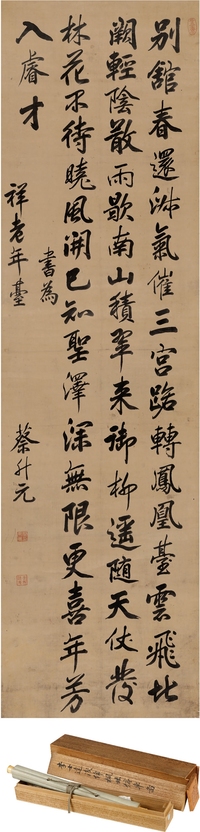 別舘春還淑氣催三宮路轉鳳凰臺雲飛北
闕輕陰散雨歇南山積翠来御柳遥随天仗發
林花不待曉風開已知聖澤深無限更喜年芳
入睿才
書為
祥老年臺
蔡升元